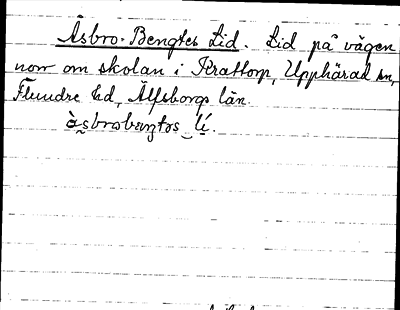 Åsbro-Bengtes Lid. Lid på vägen
norr om skolan i Krattorp, Upphärad sn,
Flundre hd, Älfsborgs län.
àsbrobæŋtəs lí.